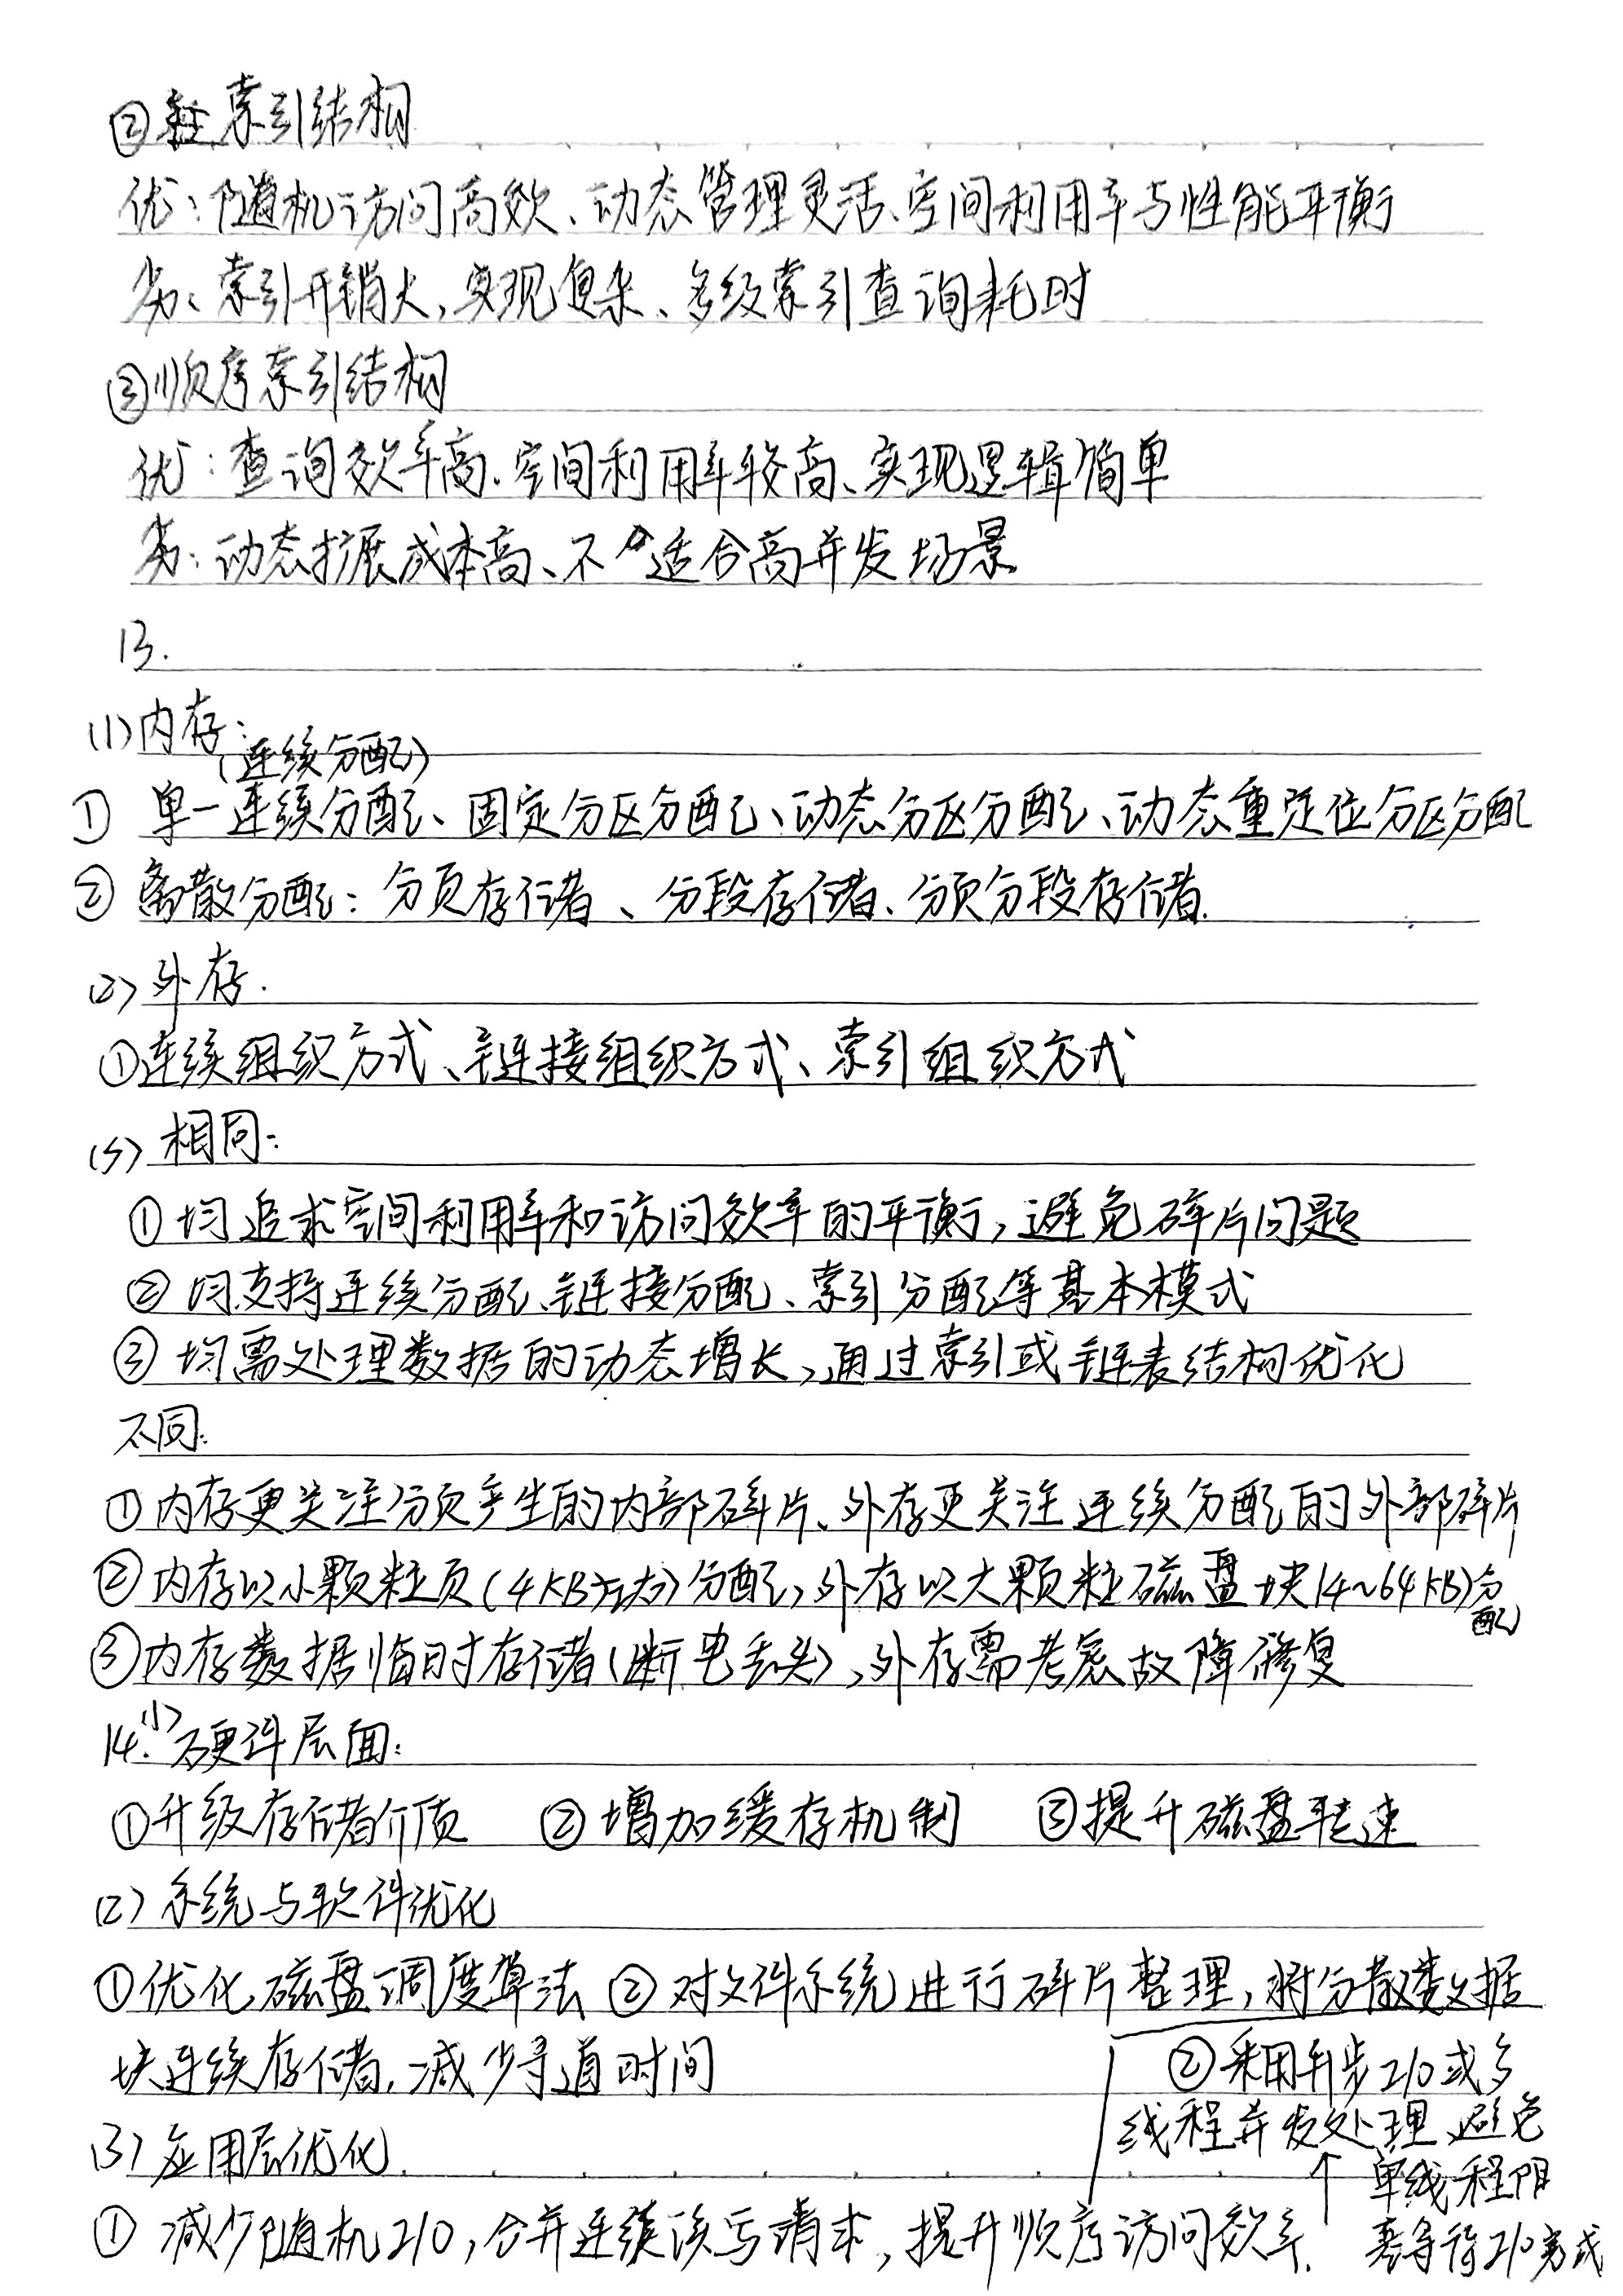 ②索引结构
优：随机访问高效、动态管理灵活、空间利用率与性能平衡
劣：索引开销大，实现复杂、多级索引查询耗时
③顺序索引结构
优：查询效率高、空间利用率较高、实现逻辑简单
劣：动态扩展成本高、不适合高并发场景
13.
(1)内存：
(连续分配)
① 单一连续分配、固定分区分配、动态分区分配、动态重定位分区分配
② 离散分配：分页存储、分段存储、分页分段存储.
(2) 外存.
①连续组织方式、链接组织方式、索引组织方式
(3) 相同：
①均追求空间利用率和访问效率的平衡，避免碎片问题
② 均支持连续分配、链接分配、索引分配等基本模式
③ 均需处理数据的动态增长，通过索引或链表结构优化
不同：
①内存更关注分页产生的内部碎片、外存更关注连续分配的外部碎片
②内存以小颗粒页(4KB)分配，外存以大颗粒磁盘块(4~64KB)分
配
③内存数据临时存储(断电丢失)，外存需考虑故障修复
14.(1)硬件层面：
①升级存储介质 ②增加缓存机制 ③提升磁盘转速
(2) 系统与软件优化
①优化磁盘调度算法 ②对文件系统进行碎片整理，将分散数据
块连续存储，减少寻道时间
(3) 应用层优化
① 减少随机I/O，合并连续读写请求，提升顺序访问效率.
②采用异步I/O或多
线程并发处理，避免
单线程阻
塞等待I/O完成